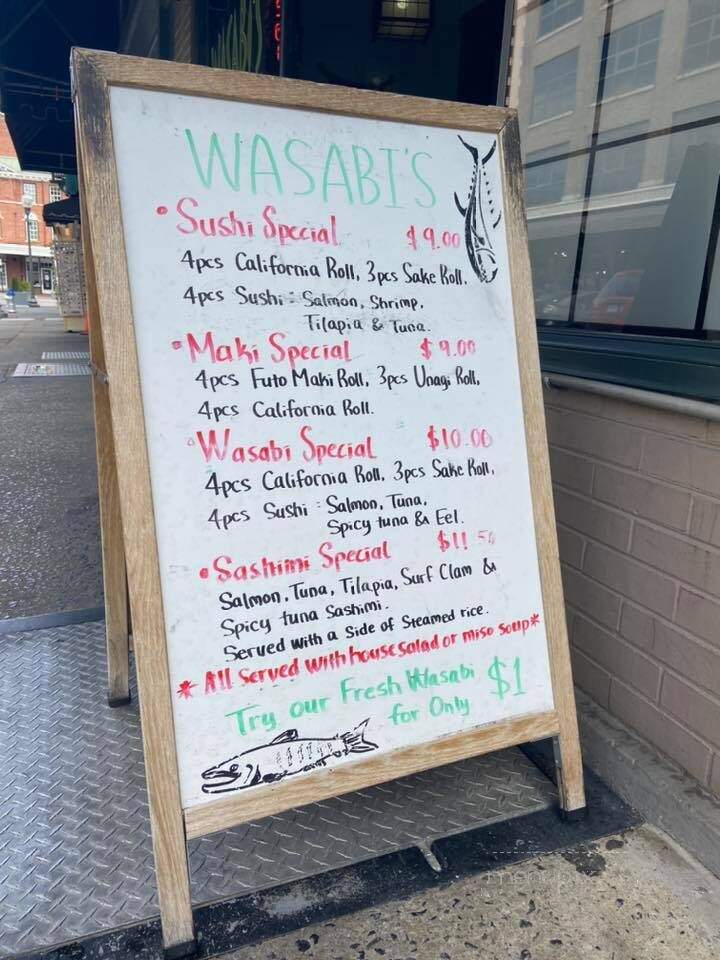 WASABI'S
• Sushi Special $9.00
4pcs California Roll, 3pcs Sake Roll,
4pcs Sushi : Salmon, Shrimp,
Tilapia & Tuna.
• Maki Special $9.00
4pcs Futo Maki Roll, 3pcs Unagi Roll,
4pcs California Roll.
• Wasabi Special $10.00
4pcs California Roll, 3pcs Sake Roll,
4pcs Sushi : Salmon, Tuna,
Spicy tuna & Eel.
• Sashimi Special $11.50
Salmon, Tuna, Tilapia, Surf Clam &
Spicy tuna Sashimi.
Served with a Side of Steamed rice.
* All Served with house salad or miso soup *
Try our Fresh Wasabi $1
for Only